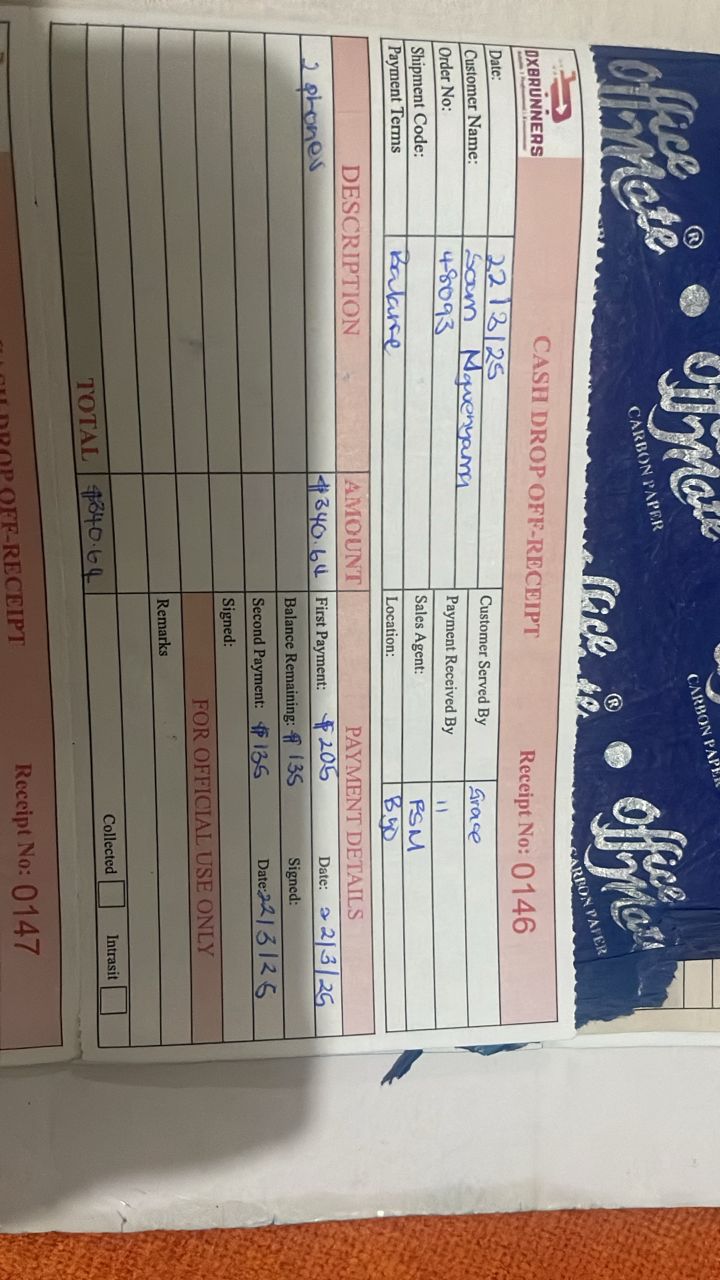 office Mate ® office Mate
CARBON PAPER
CARBON PAPER
office ® office Mate
CARBON PAPER
OXBRUNNERS
CASH DROP OFF-RECEIPT Receipt No: 0146
Date: 22/3/25
Customer Served By Grace
Customer Name: Sam
Payment Received By 11
Order No: 48093
Sales Agent: PSM
Shipment Code:
Location: Byo
Payment Terms Balance
DESCRIPTION AMOUNT PAYMENT DETAILS
2 phones $340.64 First Payment: $205 Date: 22/3/25
Balance Remaining: $135 Signed:
Second Payment: $135 Date: 22/3/25
Signed:
FOR OFFICIAL USE ONLY
Remarks
Collected Intrasit
TOTAL $340.64
CASH DROP OFF-RECEIPT Receipt No: 0147